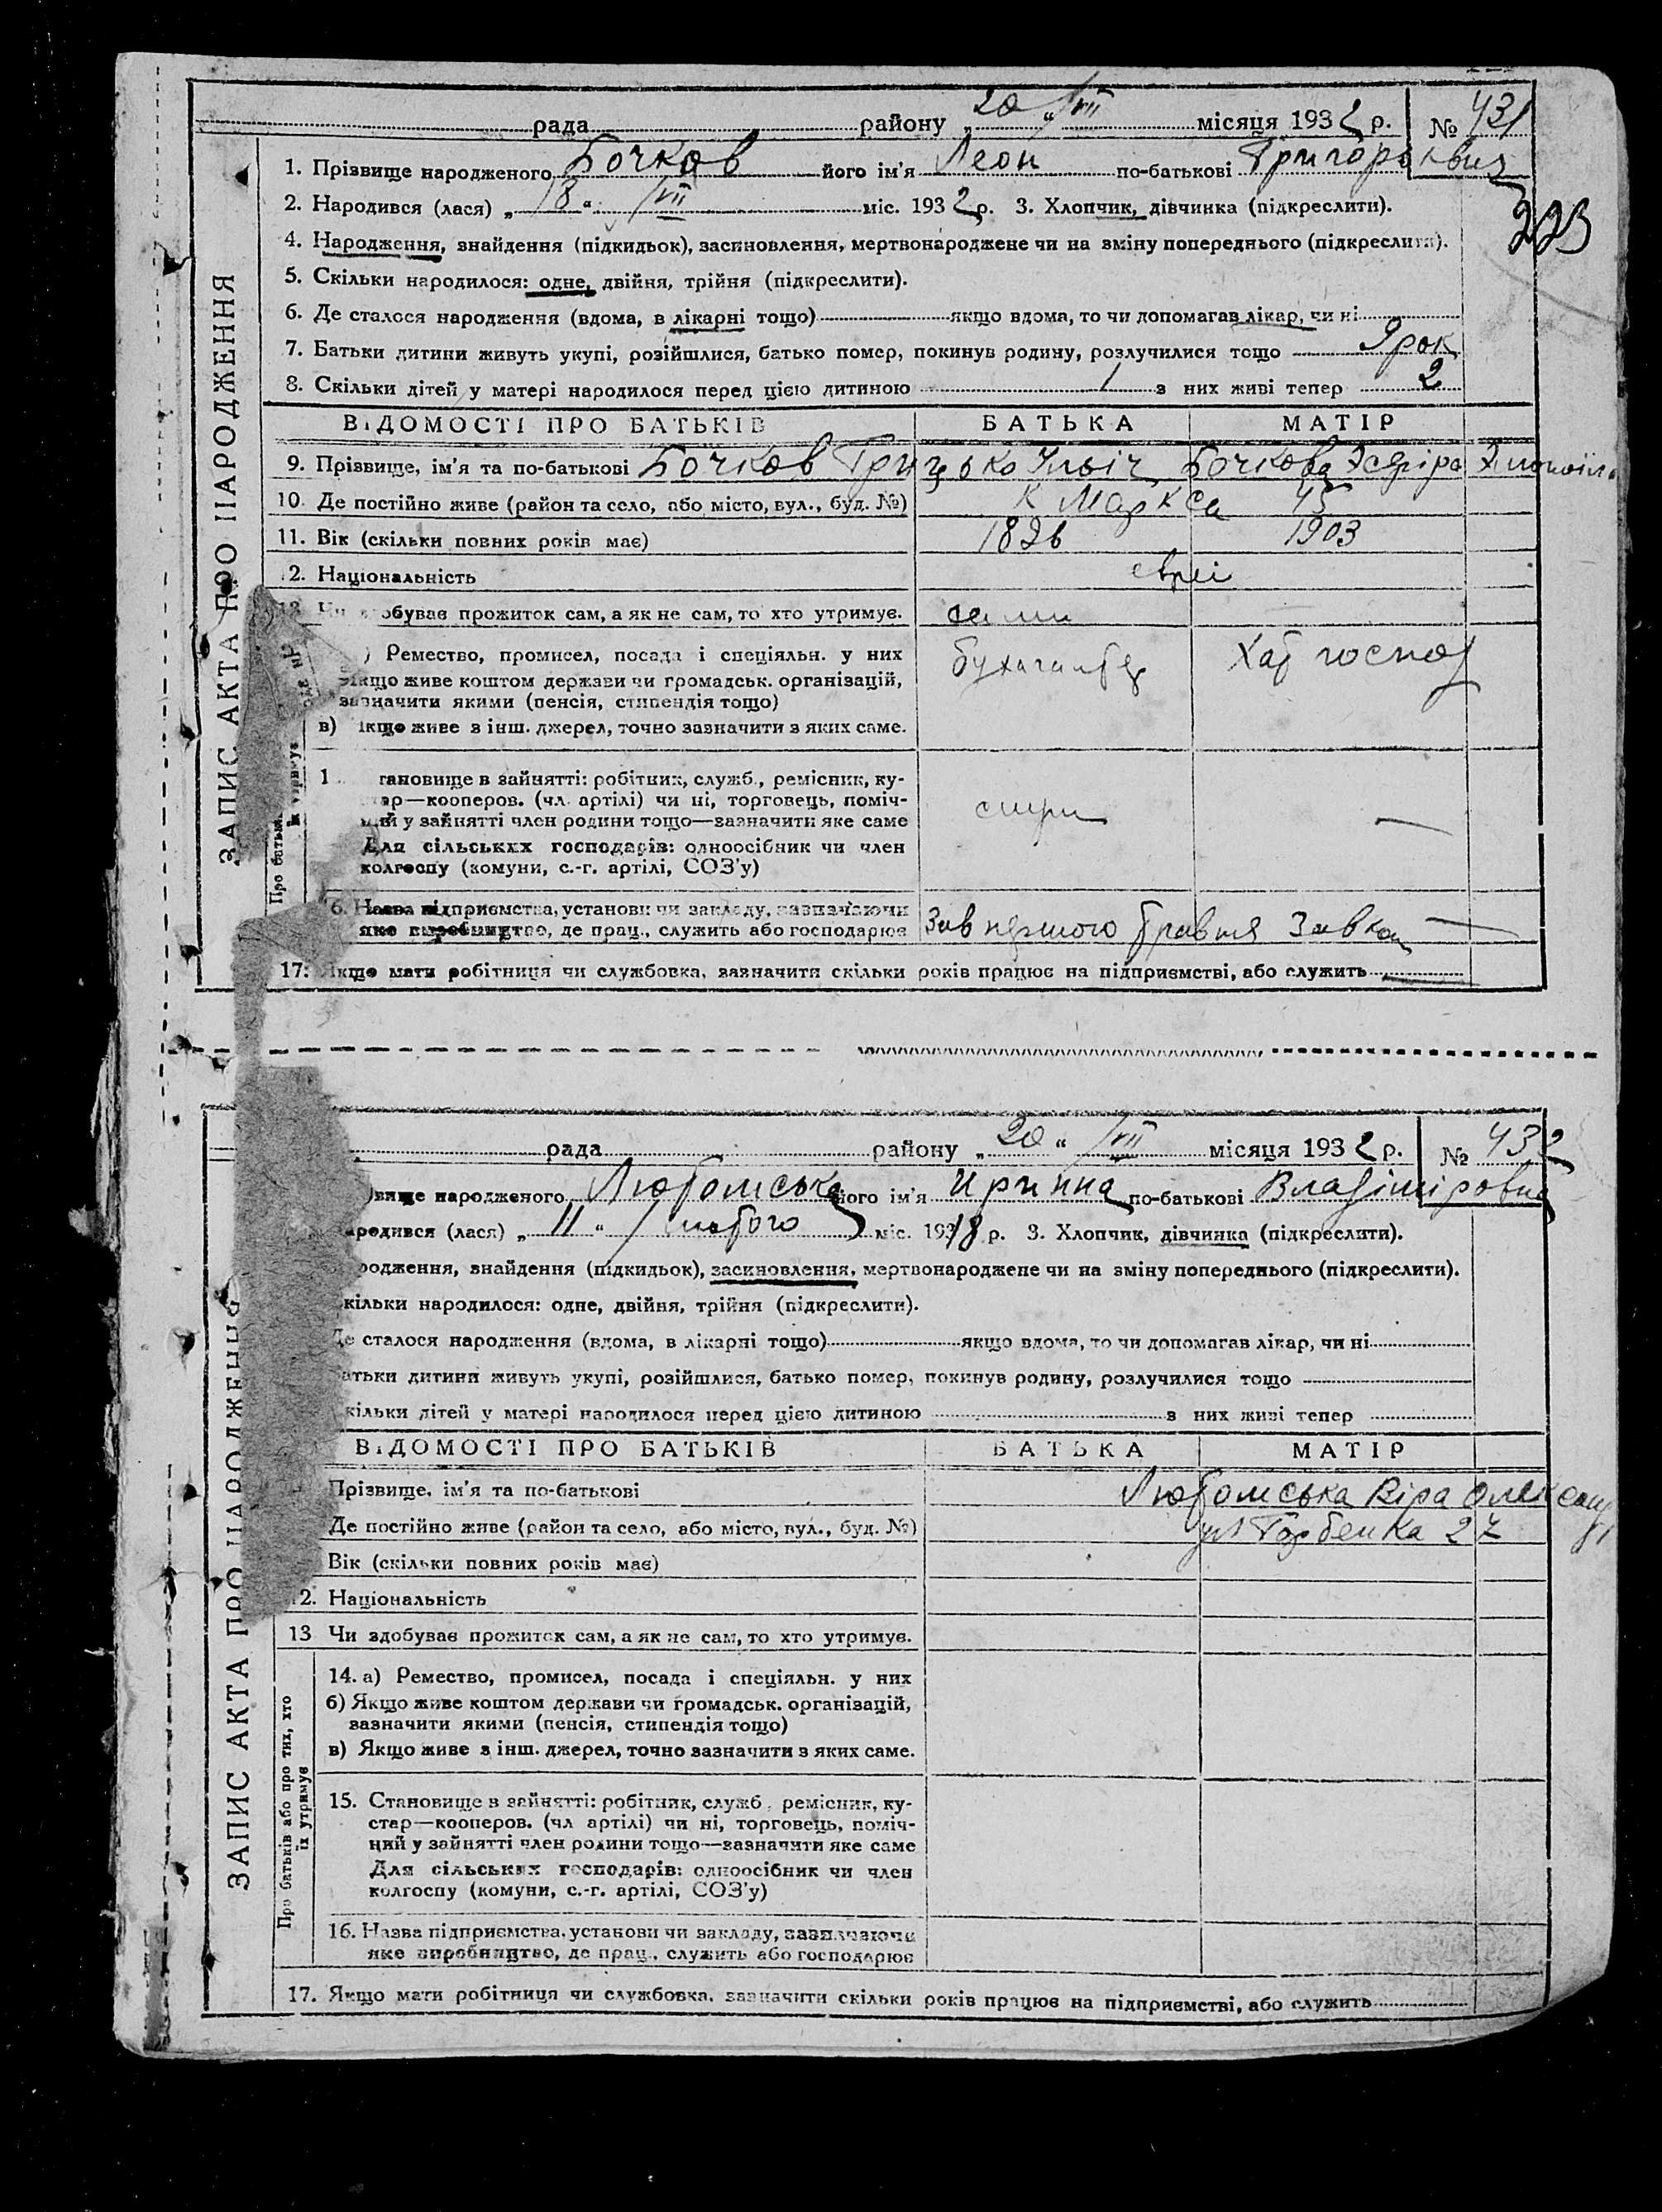 рада району „20“ VII місяця 1932 р. № 431
1. Прізвище народженого Бочков його ім'я Леон по-батькові Григорович
2. Народився (лася) „18“ VII міс. 1932 р. 3. Хлопчик, дівчинка (підкреслити).
223
4. Народження, знайдення (підкидьок), засиновлення, мертвонароджене чи на зміну попереднього (підкреслити).
5. Скільки народилося: одне, двійня, трійня (підкреслити).
6. Де сталося народження (вдома, в лікарні тощо) якщо вдома, то чи допомагав лікар, чи ні
7. Батьки дитини живуть укупі, розійшлися, батько помер, покинув родину, розлучилися тощо 9 рок
8. Скільки дітей у матері народилося перед цією дитиною 1 з них живі тепер 2
ВІДОМОСТІ ПРО БАТЬКІВ БАТЬКА МАТІР
9. Прізвище, ім'я та по-батькові Бочков Грицько Ильіч Бочкова Эсфіра
10. Де постійно живе (район та село, або місто, вул., буд. №) К Маркса 45
11. Вік (скільки повних років має) 1896 1903
2. Національність євреї
обуває прожиток сам, а як не сам, то хто утримує. сами
) Ремество, промисел, посада і спеціяльн. у них бухгалтер Хат господ
якщо живе коштом держави чи громадськ. організацій,
зазначити якими (пенсія, стипендія тощо)
в) якщо живе з інш. джерел, точно зазначити з яких саме.
1 тановище в зайнятті: робітник, служб., ремісник, ку-
тар—кооперов. (чл. артілі) чи ні, торговець, поміч-
ний у зайнятті член родини тощо—зазначити яке саме служ —
Для сільських господарів: одноосібник чи член
колгоспу (комуни, с.-г. артілі, СОЗ'у)
6. Назва підприємства, установи чи закладу, зазначаючи
яке виробництво, де прац., служить або господарює Зав першого травня Завком —
17. Якщо мати робітниця чи службовка, зазначити скільки років працює на підприємстві, або служить —
ЗАПИС АКТА ПРО НАРОДЖЕННЯ
рада району „20“ VII місяця 1932 р. № 432
вище народженого Любомська його ім'я Иринна по-батькові Владіміровна
ародився (лася) „11“ лютого міс. 1918 р. 3. Хлопчик, дівчинка (підкреслити).
родження, знайдення (підкидьок), засиновлення, мертвонароджене чи на зміну попереднього (підкреслити).
кільки народилося: одне, двійня, трійня (підкреслити).
Де сталося народження (вдома, в лікарні тощо) якщо вдома, то чи допомагав лікар, чи ні
атьки дитини живуть укупі, розійшлися, батько помер, покинув родину, розлучилися тощо
кільки дітей у матері народилося перед цією дитиною з них живі тепер
ВІДОМОСТІ ПРО БАТЬКІВ БАТЬКА МАТІР
Прізвище, ім'я та по-батькові Любомська Віра Олександ
Де постійно живе (район та село, або місто, вул., буд. №) ул Горбенка 27
Вік (скільки повних років має)
12. Національність
13 Чи здобуває прожиток сам, а як не сам, то хто утримує.
14. а) Ремество, промисел, посада і спеціяльн. у них
б) Якщо живе коштом держави чи громадськ. організацій,
зазначити якими (пенсія, стипендія тощо)
в) Якщо живе з інш. джерел, точно зазначити з яких саме.
15. Становище в зайнятті: робітник, служб., ремісник, ку-
стар—кооперов. (чл артілі) чи ні, торговець, поміч-
ний у зайнятті член родини тощо—зазначити яке саме
Для сільських господарів: одноосібник чи член
колгоспу (комуни, с.-г. артілі, СОЗ'у)
16. Назва підприємства, установи чи закладу, зазначаючи
яке виробництво, де прац., служить або господарює
17. Якщо мати робітниця чи службовка, зазначити скільки років працює на підприємстві, або служить
ЗАПИС АКТА ПРО НАРОДЖЕННЯ
Про батьків або про тих, хто
їх утримує